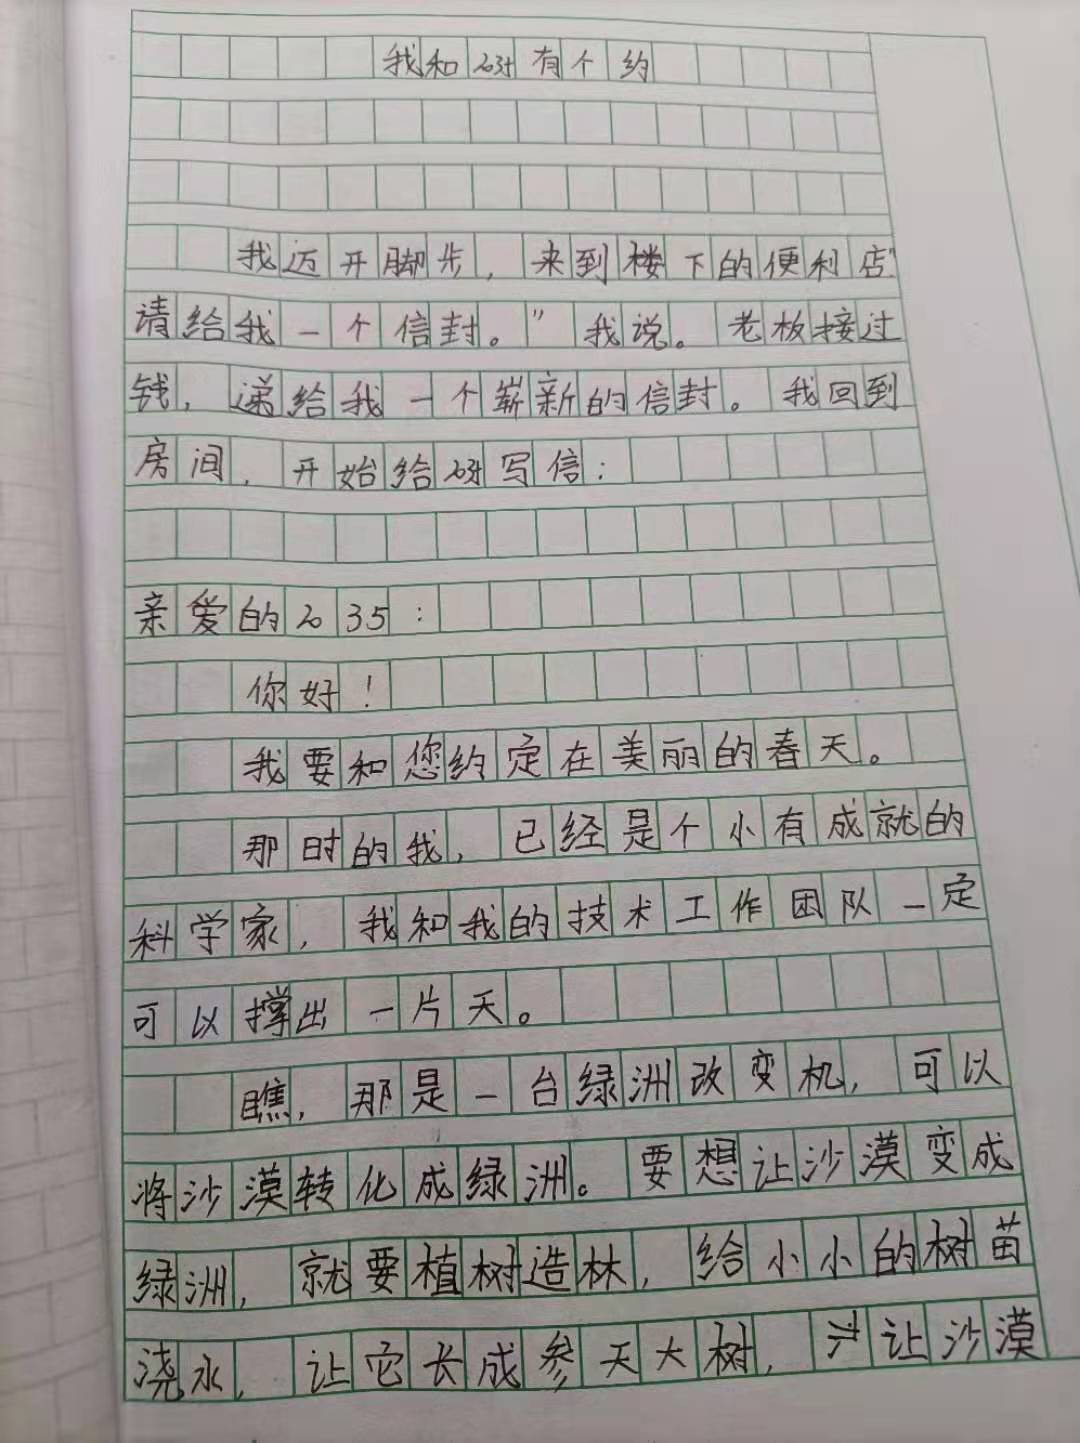 我和2035有个约
我迈开脚步，来到楼下的便利店“
请给我一个信封。”我说。老板接过
钱，递给我一个崭新的信封。我回到
房间，开始给2035写信：
亲爱的2035：
你好！
我要和您约定在美丽的春天。
那时的我，已经是个小有成就的
科学家，我和我的技术工作团队一定
可以撑出一片天。
瞧，那是一台绿洲改变机，可以
将沙漠转化成绿洲。要想让沙漠变成
绿洲，就要植树造林，给小小的树苗
浇水，让它长成参天大树，让沙漠